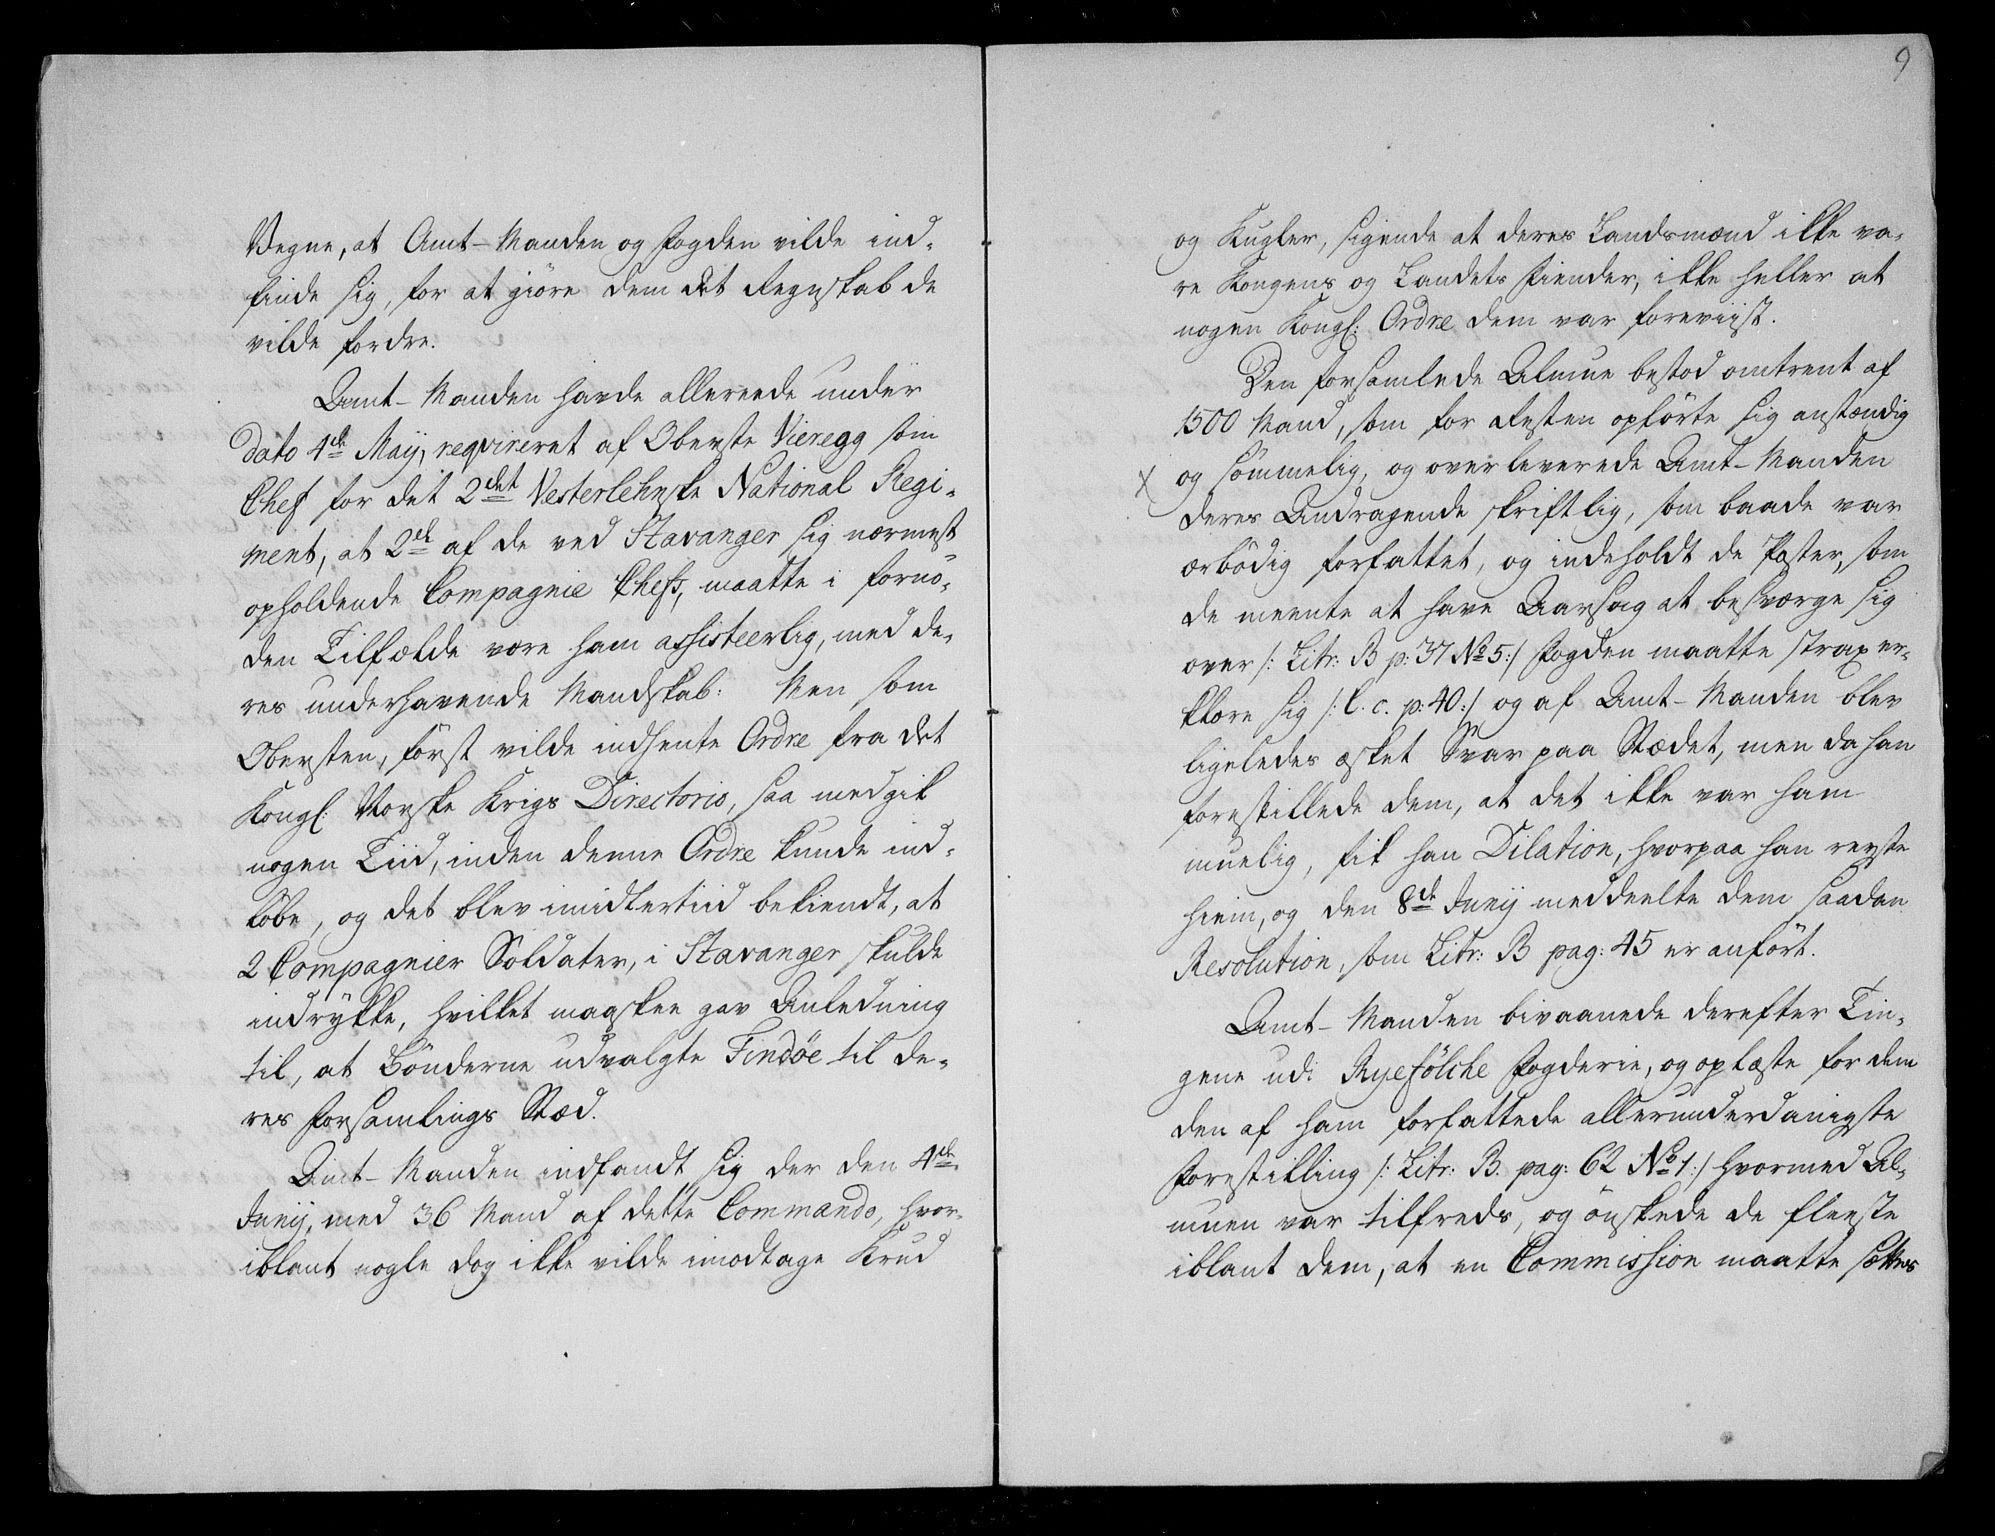 Vegne, at Amt-Manden og Fogden vilde ind-
finde sig, for at giöre dem det Regnskab de
vilde fordre.
Amt-Manden havde allereede under
dato 4de Maij, reqvireret af Oberste Vieregg som
Chef for det 2det Vesterlehnske National Regi-
ment, at 2de af de ved Stavanger sig nærmest
opholdende Compagnie Chefs, maatte i fornö-
den Tilfælde være ham assisteerlig, med de-
res underhavende Mandskab: Men som
Obersten, först vilde indhente Ordre fra det
Kongl: Norske Krigs Directorio, saa medgik
nogen Tiid, inden denne Ordre kunde ind-
löbe, og det blev imidlertiid bekiendt, at
2 Compagnier Soldater, i Stavanger skulde
indrykke, hvilket maaskee gav Anledning
til, at Bönderne udvalgte Findöe til de-
res Forsamlings Stæd.
Amt-Manden indfandt sig der den 4de
Junij, med 36 Mand af dette Commando, hvor-
iblant nogle dog ikke vilde imodtage Krud
9
og Kugler, sigende at deres Landsmænd ikke va-
re Kongens og Landets Fiender, ikke heller at
nogen Kongl: Ordre dem var foreviist.
Den forsamlede Almue bestod omtrent af
1500 Mand, som for Resten opförte sig anstændig
og sömmelig, og overleverede Amt-Manden
X
deres Andragende skriftlig, som baade var
ærbödig forfattet, og indeholdt de Poster, som
de meente at have Aarsag at besværge sig
over /: Litr: B p: 37 No 5:/ Fogden maatte strax er-
klære sig /: l. c. p: 40:/ og af Amt-Manden blev
ligeledes æsket Svar paa Stædet, men da han
forestillede dem, at det ikke var ham
muelig, fik han Dilation, hvorpaa han reyste
hiem, og den 8de Junij meddeelte dem saadan
Resolution, som Litr: B pag: 45 er anfört.
Amt-Manden bivaanede derefter Tin-
gene udi Ryefölche Fogderie, og oplæste for dem
den af ham forfattede allerunderdanigste
Forestilling /: Litr: B. pag: 62 No 1:/ hvormed Al-
muen var tilfreds, og önskede de fleeste
iblant dem, at en Commission maatte sættes